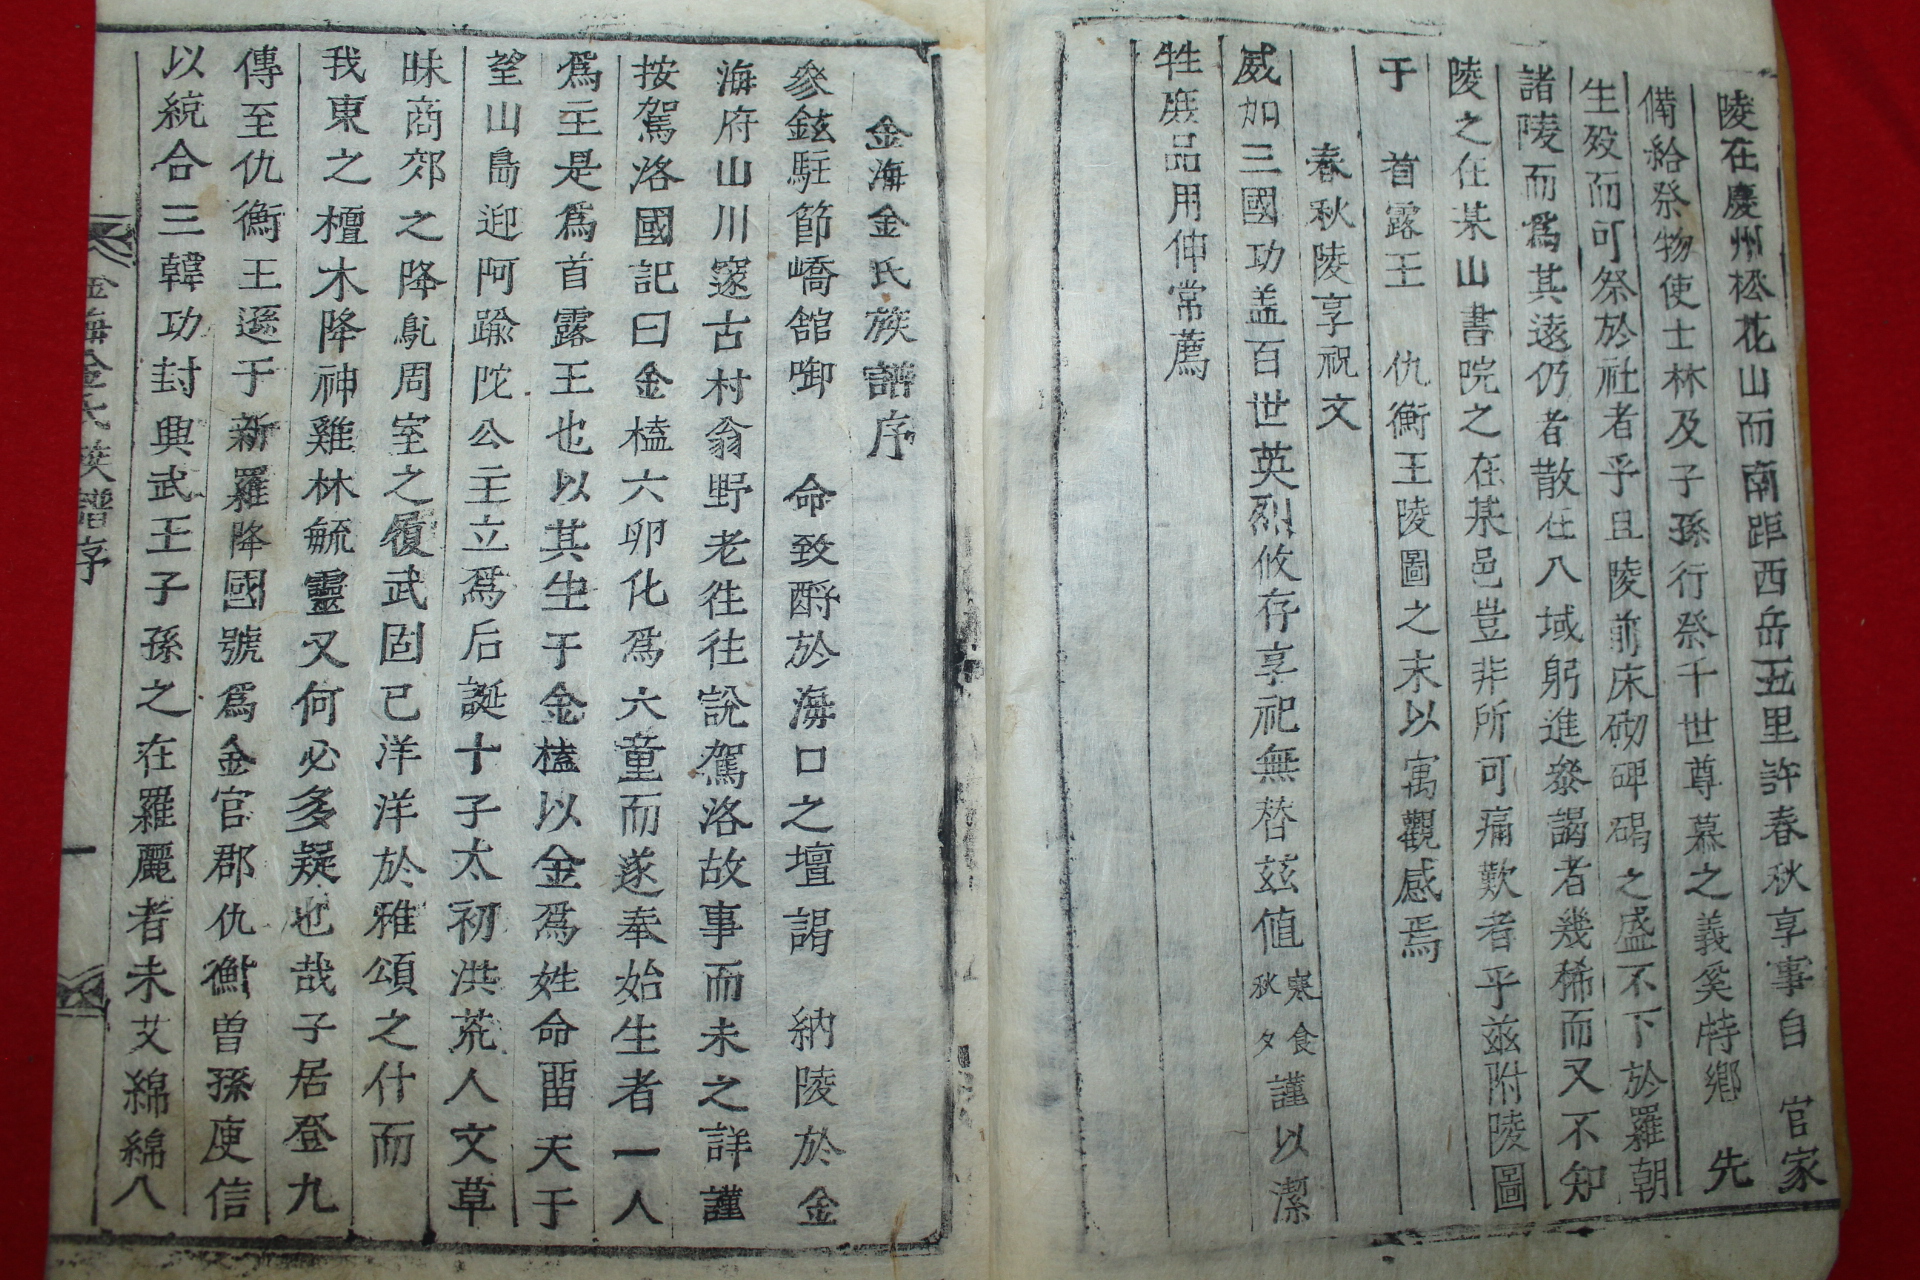 陵在慶州松花山而南距西岳五里許春秋享事自　官家
備給祭物使士林及子孫行祭千世尊慕之義奚特鄉　先
生歿而可祭於社者乎且陵前床砌碑碣之盛不下於羅朝
諸陵而爲其遠仍者散在八域躬進叅謁者幾稀而又不知
陵之在某山書院之在某邑豈非所可痛歎者乎茲附陵圖
于　首露王　仇衡王陵圖之末以寓觀感焉
春秋陵享祝文
威加三國功盖百世英烈攸存享祀無替茲值寒食秋夕謹以潔
牲庶品用伸常薦
金海金氏族譜序
叅鉉駐節嶠舘啣　命致酹於海口之壇謁　納陵於金
海府山川邃古村翁野老徃徃說駕洛故事而未之詳謹
按駕洛國記曰金榼六卵化爲六童而遂奉始生者一人
爲主是爲首露王也以其生于金榼以金爲姓命畱天于
望山島迎阿踰陀公主立爲后誕十子太初洪荒人文草
昧商郊之降鳦周室之履武固已洋洋於雅頌之什而
我東之檀木降神雞林毓靈又何必多疑也哉子居登九
傳至仇衡王遜于新羅降國號爲金官郡仇衡曽孫庾信
以統合三韓功封興武王子孫之在羅麗者未艾綿綿八
金海金氏族譜序
一